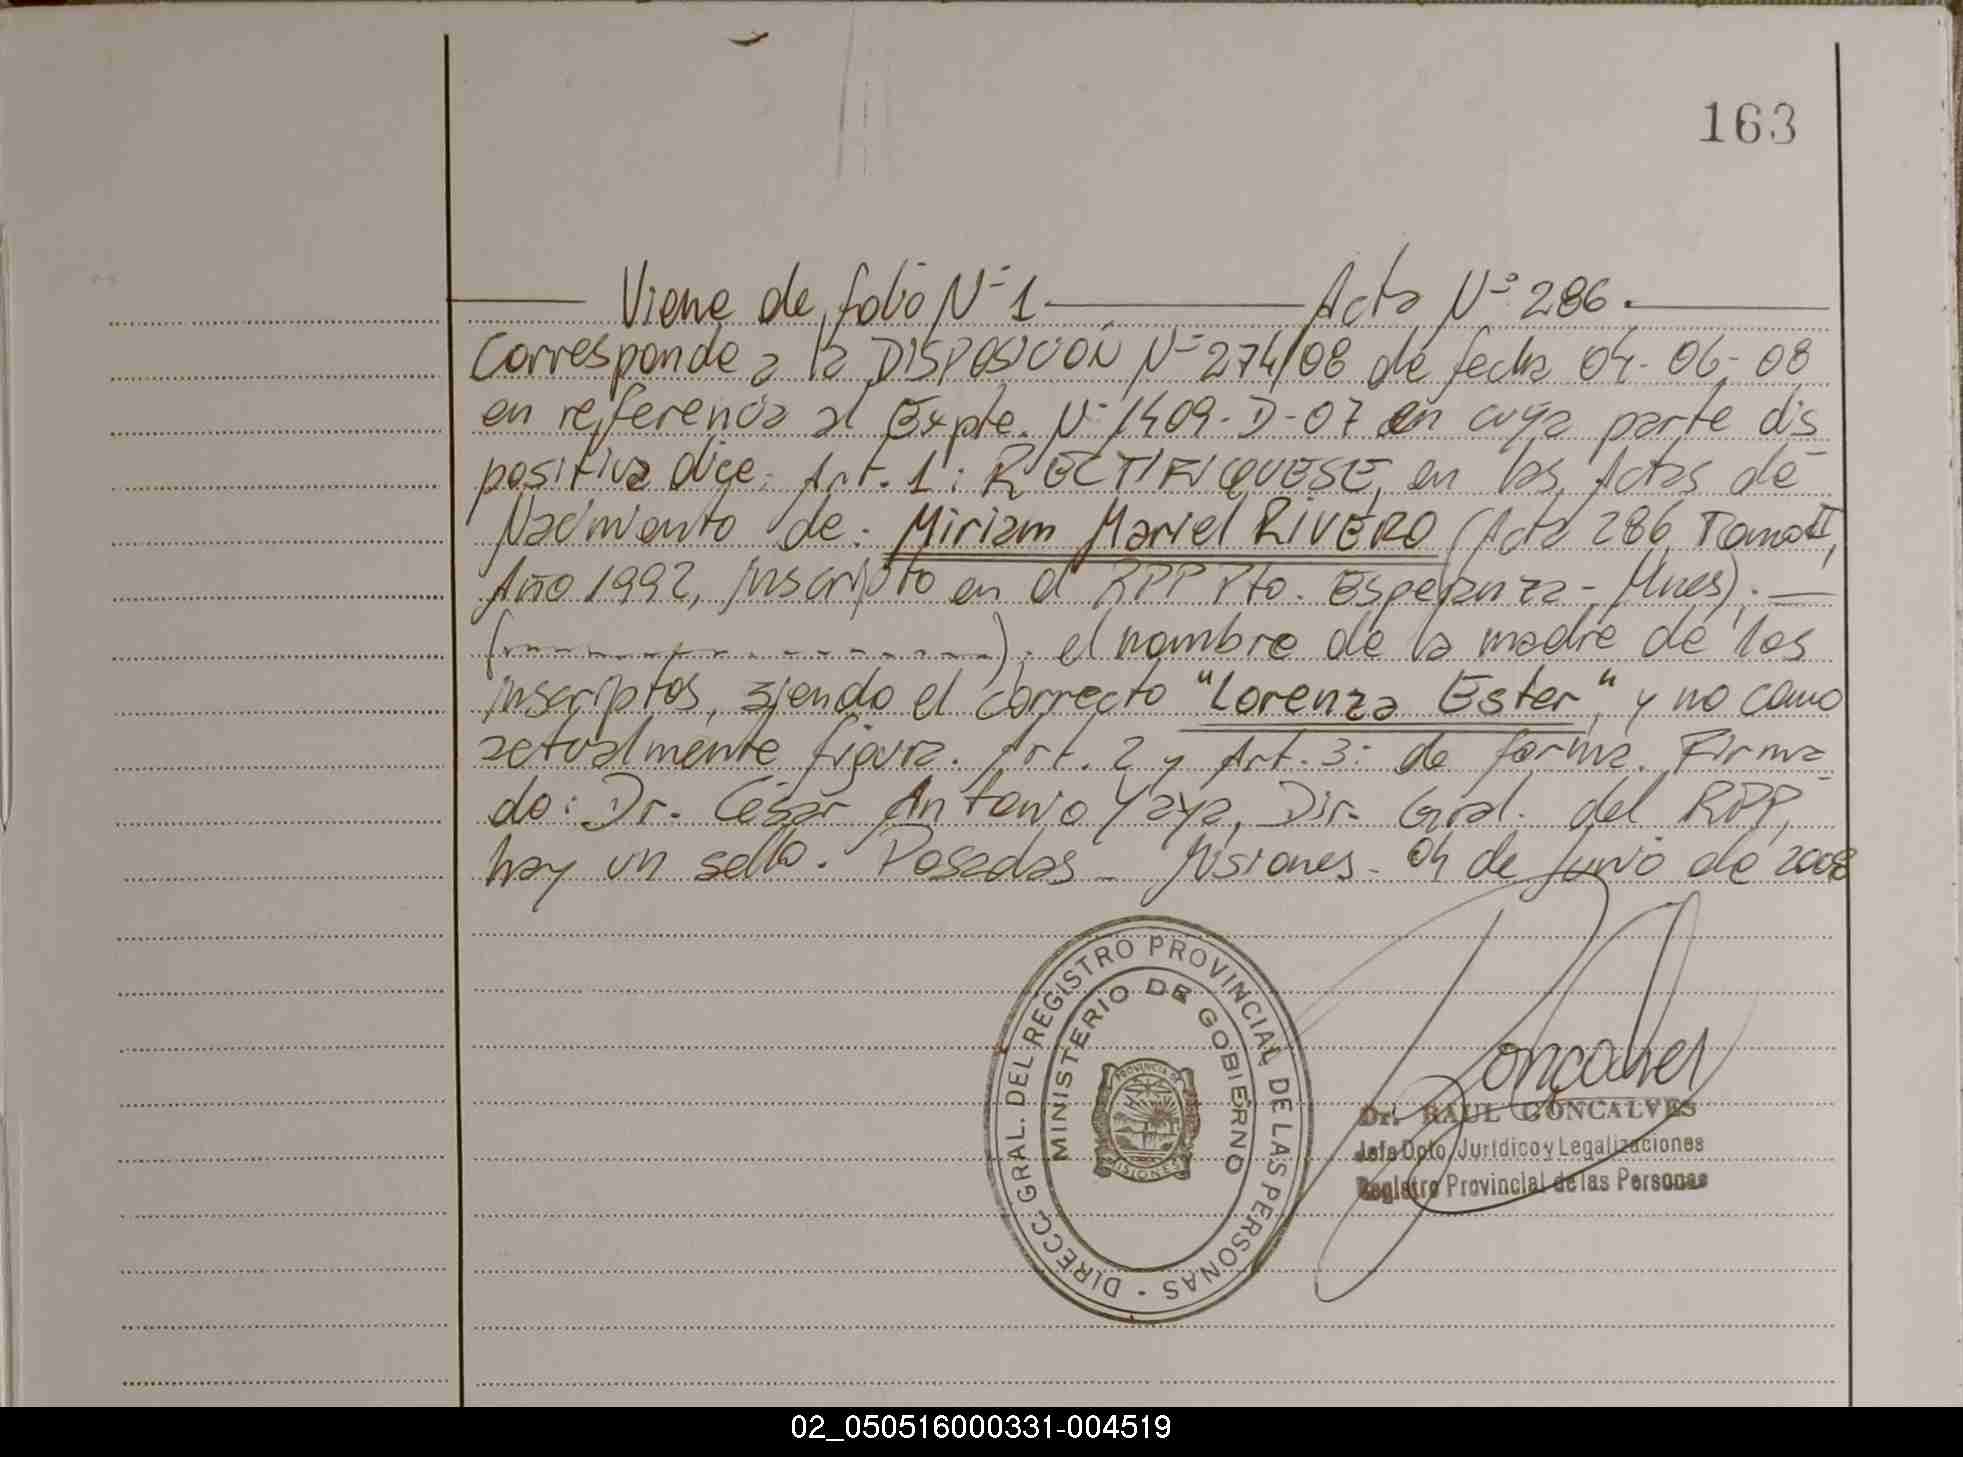 163
Viene de folio Nº 1 Acta Nº 286.
Corresponde a la DISPOSICIÓN Nº 274/08 de fecha 04-06-08
en referencia al Expte. Nº 1409-D-07 en cuya parte dis
positiva dice: Art. 1: RECTIFIQUESE, en las Actas de
Nacimiento de: Miriam Mariel RIVERO (Acta 286, Tomo II,
Año 1992, inscripto en el RPP Pto. Esperanza - Mnes).
(- - - - - - - - - -); el nombre de la madre de los
inscriptos, siendo el correcto "Lorenza Ester", y no como
actualmente figura. Art. 2 y Art. 3: de forma. Firma
do: Dr. César Antonio Yaya, Dir. Gral. del RPP,
hay un sello. Posadas - Misiones - 04 de Junio de 2008
DIRECC. GRAL. DEL REGISTRO PROVINCIAL DE LAS PERSONAS
MINISTERIO DE GOBIERNO
PROVINCIA DE
MISIONES
Goncalves
Dr. RAUL GONCALVES
Jefe Dpto. Jurídico y Legalizaciones
Registro Provincial de las Personas
02_050516000331-004519